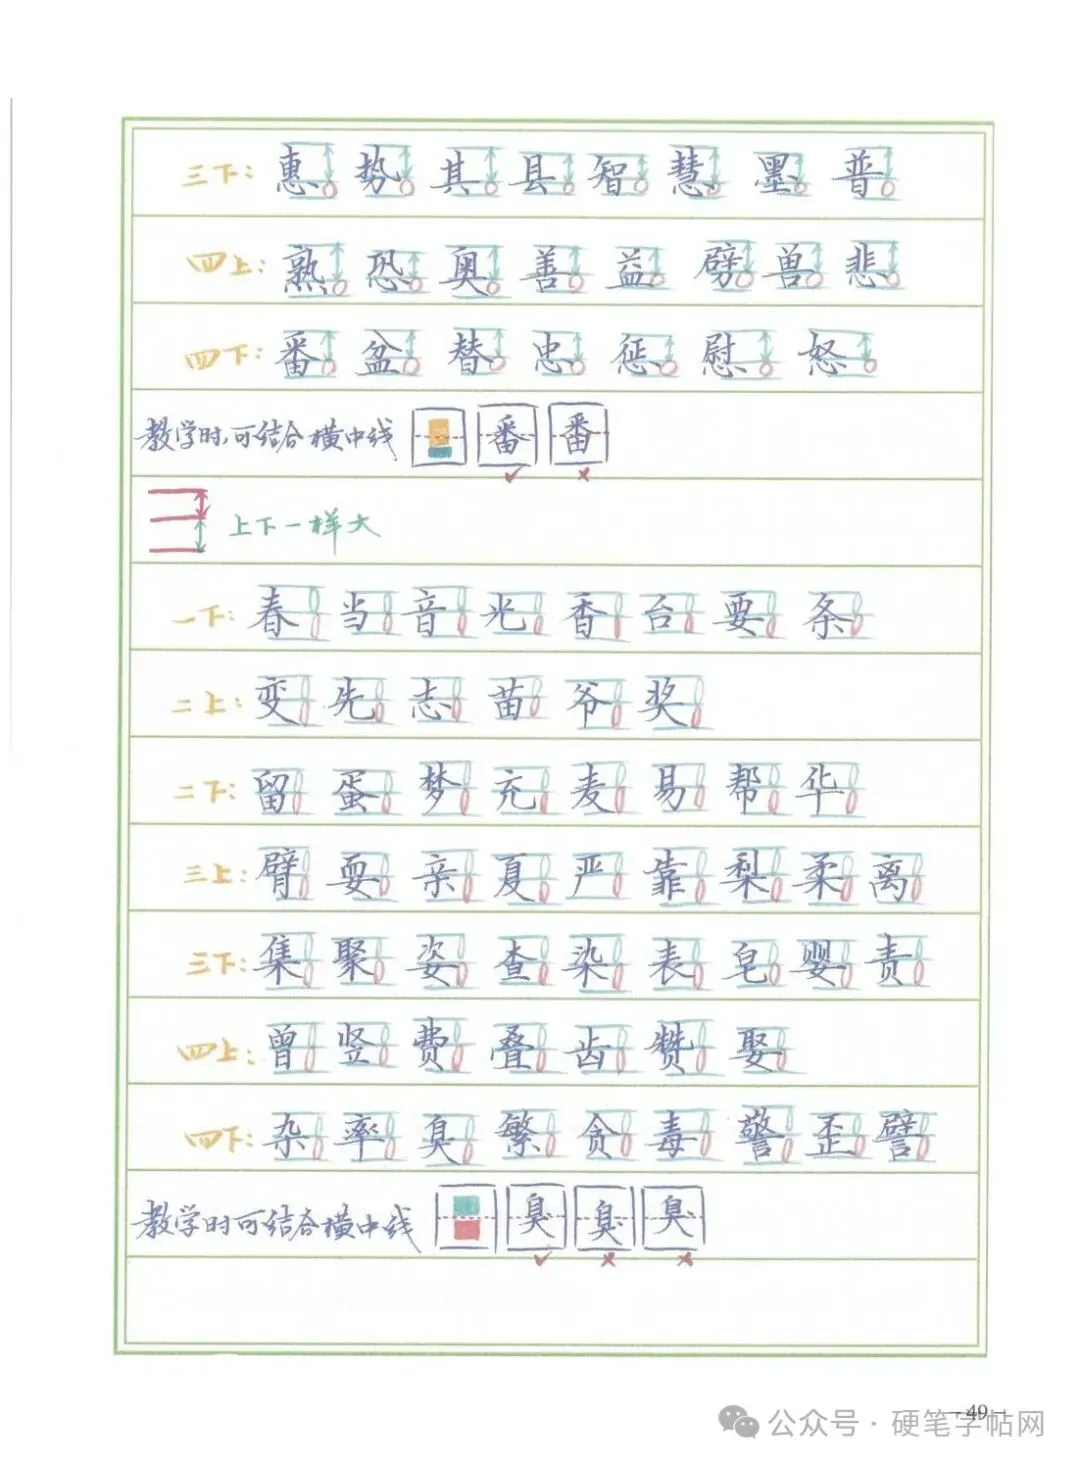 三下: 惠 势 其 县 智 慧 墨 普
四上: 熟 恐 奥 善 益 劈 兽 悲
四下: 番 盆 替 忠 惩 慰 怒
教学时,可结合横中线 番 番
上下一样大
一下: 春 当 音 光 香 台 要 条
二上: 变 先 志 苗 爷 奖
二下: 留 蛋 梦 充 麦 易 帮 华
三上: 臂 耍 亲 夏 严 靠 梨 柔 离
三下: 集 聚 姿 查 染 表 皂 婴 责
四上: 曾 竖 费 叠 齿 赞 娶
四下: 杂 率 臭 繁 贪 毒 警 歪 譬
教学时可结合横中线 臭 臭 臭
—49—
公众号·硬笔字帖网